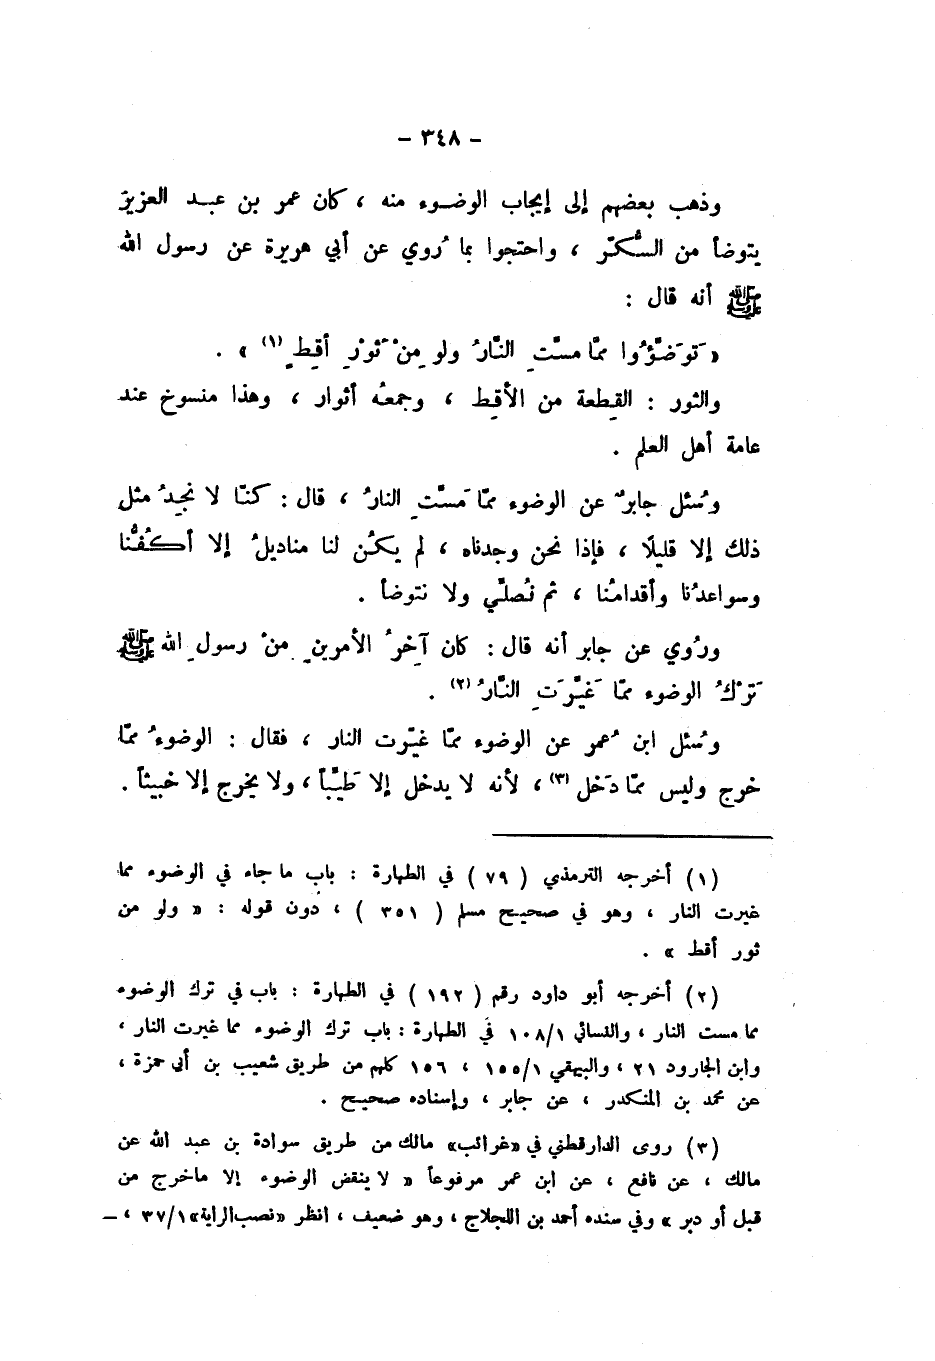 - ٣٤٨ -
وذهب بعضهم إلى إيجاب الوضوء منه ، كان عمر بن عبد العزيز
يتوضأ من السُّكّر ، واحتجوا بما رُوي عن أبي هريرة عن رسول الله
ﷺ أنه قال :
« تَوَضَّؤُوا مِمَّا مسَّتِ النَّارُ ولو مِنْ ثَوْرِ أقِطٍ (١) » .
والثور : القِطعة من الأقِط ، وجمعُه أثوار ، وهذا منسوخ عند
عامة أهل العلم .
وسُئل جابرٌ عن الوضوء ممّا مَسَّتِ النارُ ، قال : كنّا لا نجِدُ مثل
ذلك إلا قليلًا ، فإذا نحن وجدناه ، لم يكُن لنا مناديلُ إلا أكُفُّنا
وسواعدُنا وأقدامُنا ، ثم نُصلّي ولا نتوضأ .
ورُوي عن جابر أنه قال : كان آخِرُ الأمرينِ مِنْ رسولِ الله ﷺ
تَرْكُ الوضوء ممّا غَيَّرَتِ النَّارُ (٢) .
وسُئل ابن عُمر عن الوضوء ممّا غيّرت النار ، فقال : الوضوءُ ممّا
خرج وليس ممّا دَخل (٣) ، لأنه لا يدخل إلا طَيِّباً ، ولا يخرج إلا خبيثاً .
(١) أخرجه الترمذي ( ٧٩ ) في الطهارة : باب ما جاء في الوضوء مما
غيرت النار ، وهو في صحيح مسلم ( ٣٥١ ) ، دون قوله : « ولو من
ثور أقط » .
(٢) أخرجه أبو داود رقم ( ١٩٢ ) في الطهارة : باب في ترك الوضوء
مما مست النار ، والنسائي ١٠٨/١ في الطهارة : باب ترك الوضوء مما غيرت النار ،
وابن الجارود ٢١ ، والبيهقي ١٥٥/١ ، ١٥٦ كلهم من طريق شعيب بن أبي حمزة ،
عن محمد بن المنكدر ، عن جابر ، وإسناده صحيح .
(٣) روى الدارقطني في «غرائب» مالك من طريق سوادة بن عبد الله عن
مالك ، عن نافع ، عن ابن عمر مرفوعاً « لا ينقض الوضوء إلا ما خرج من
قبل أو دبر » وفي سنده أحمد بن اللجلاج ، وهو ضعيف ، انظر «نصب الراية» ٣٧/١ ، -